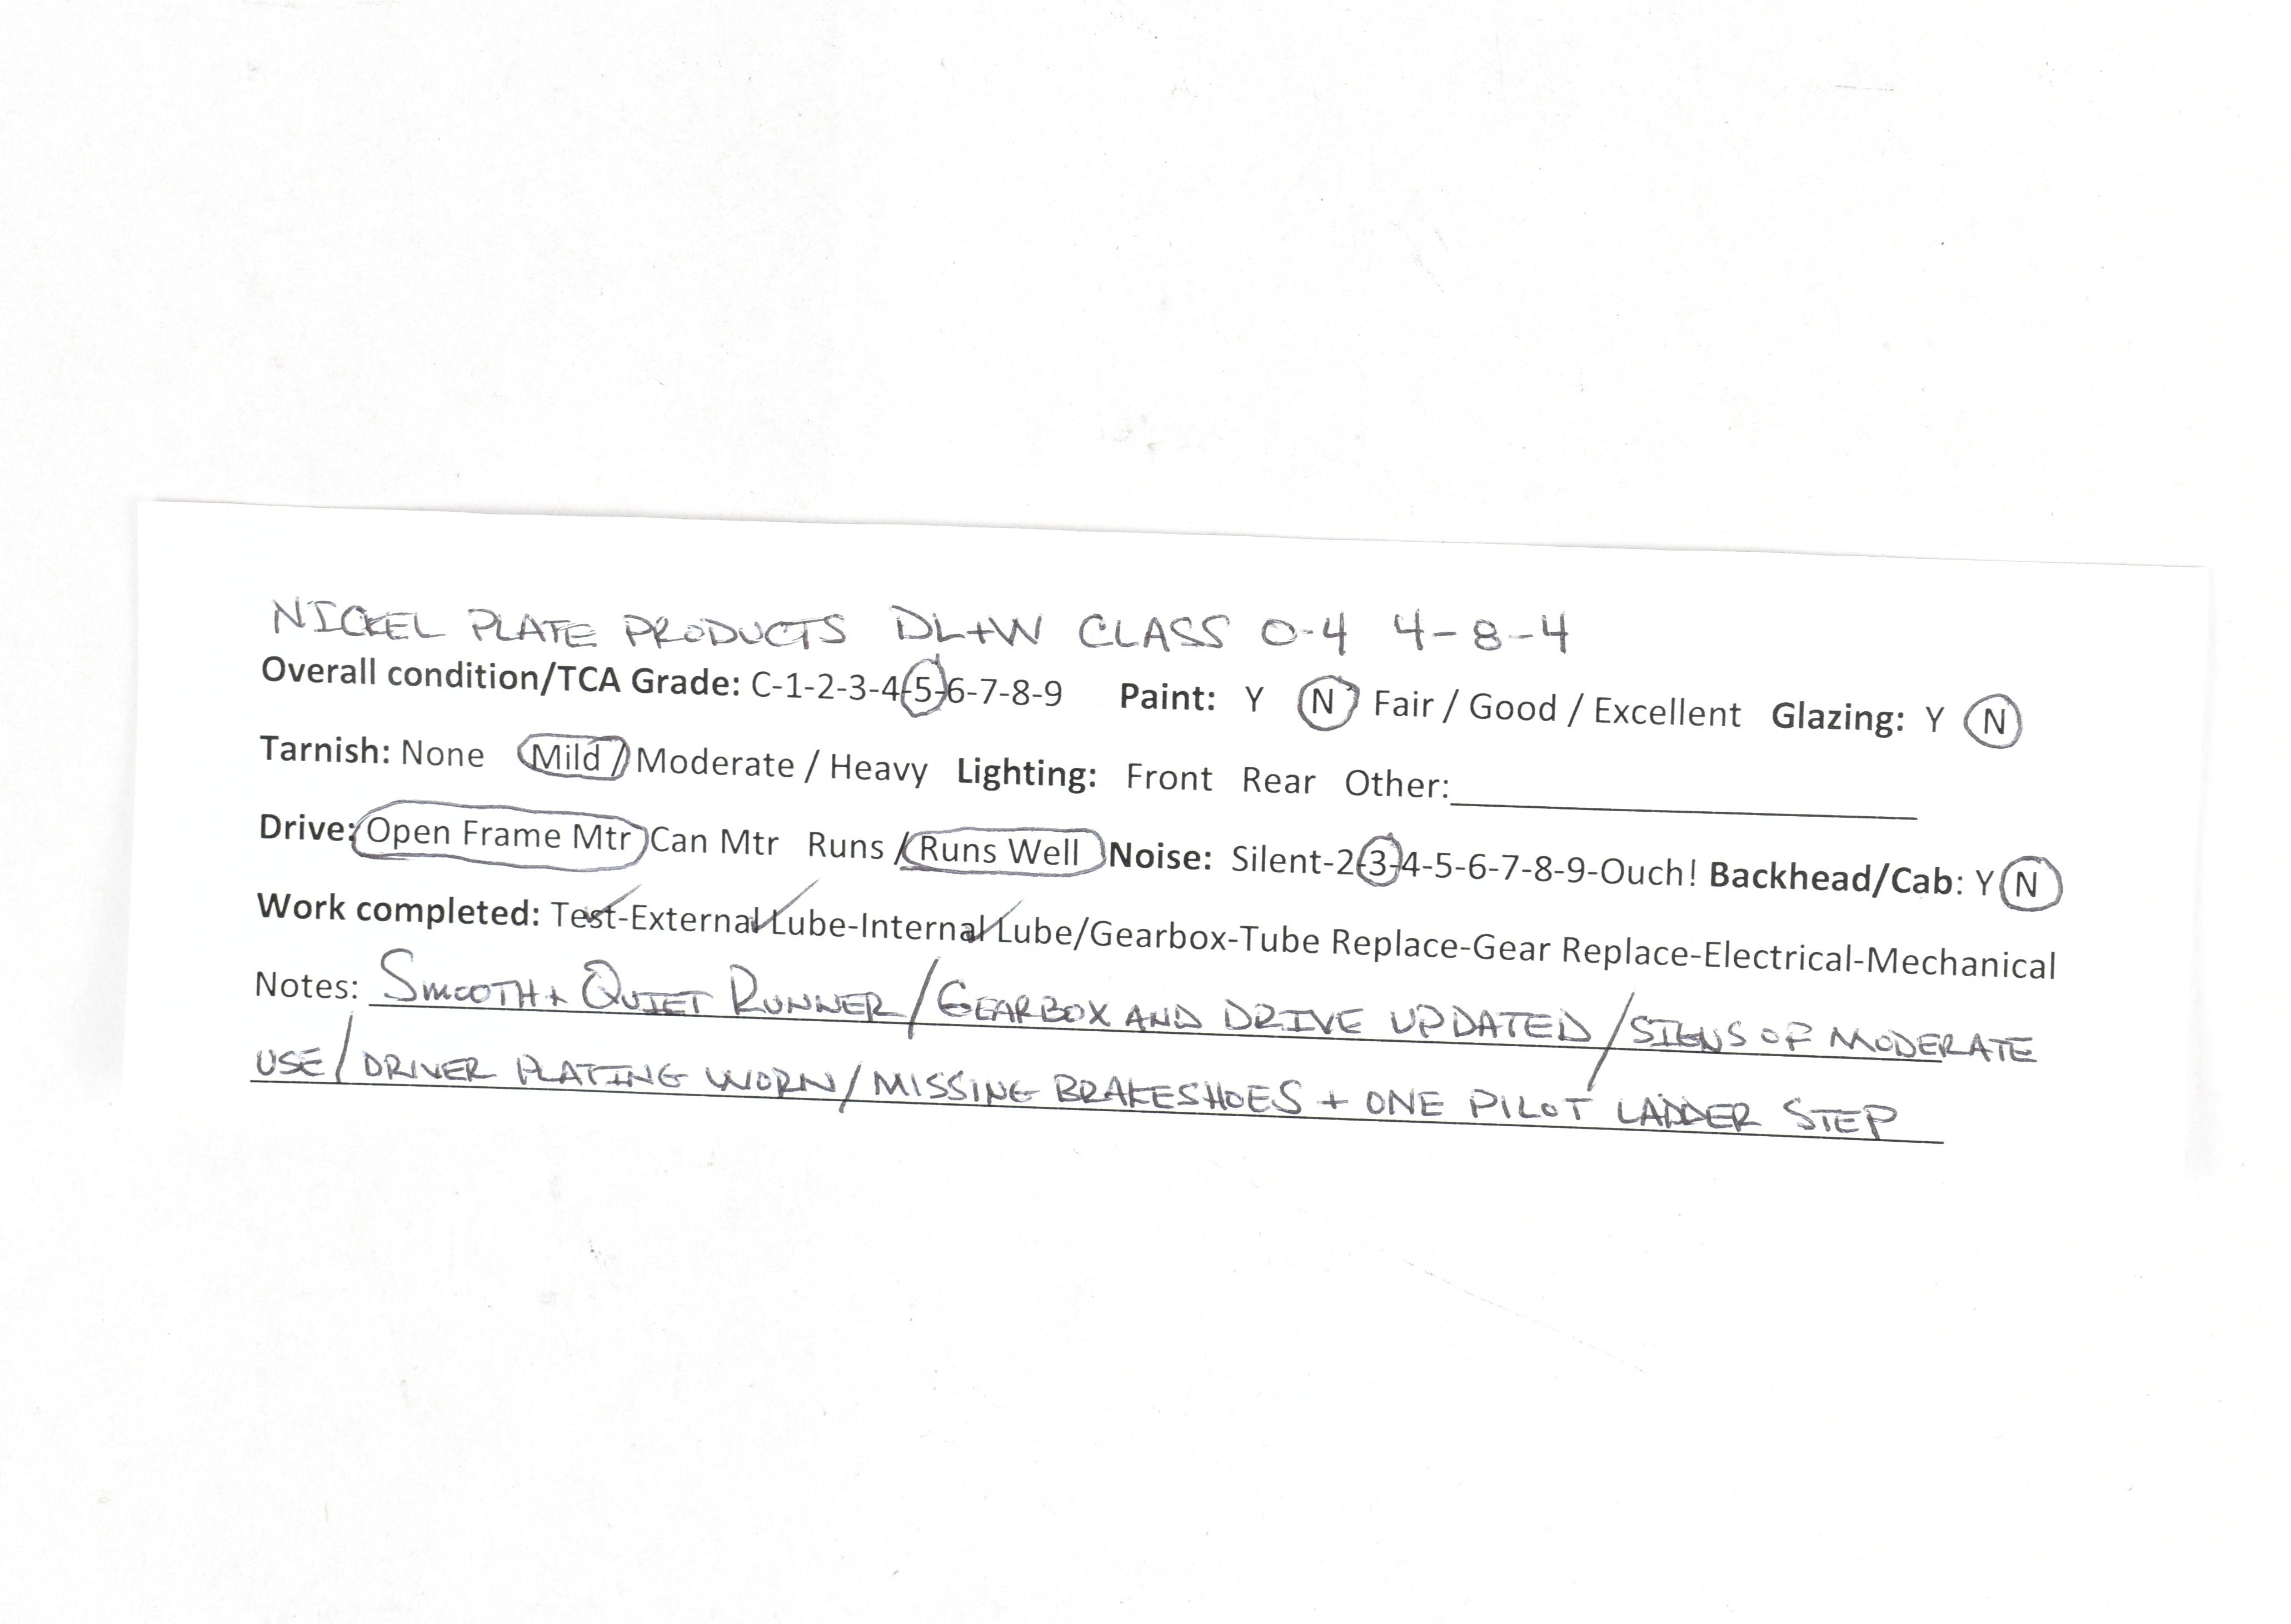 NICKEL PLATE PRODUCTS DL+W CLASS O-4 4-8-4
Overall condition/TCA Grade: C-1-2-3-4-5-6-7-8-9 Paint: Y N Fair / Good / Excellent Glazing: Y N
Tarnish: None Mild / Moderate / Heavy Lighting: Front Rear Other:
Drive: Open Frame Mtr Can Mtr Runs / Runs Well Noise: Silent-2-3-4-5-6-7-8-9-Ouch! Backhead/Cab: Y N
Work completed: Test-External Lube-Internal Lube/Gearbox-Tube Replace-Gear Replace-Electrical-Mechanical
Notes: SMOOTH + QUIET RUNNER / GEARBOX AND DRIVE UPDATED / SIGNS OF MODERATE
USE / DRIVER PLATING WORN / MISSING BRAKESHOES + ONE PILOT LADDER STEP